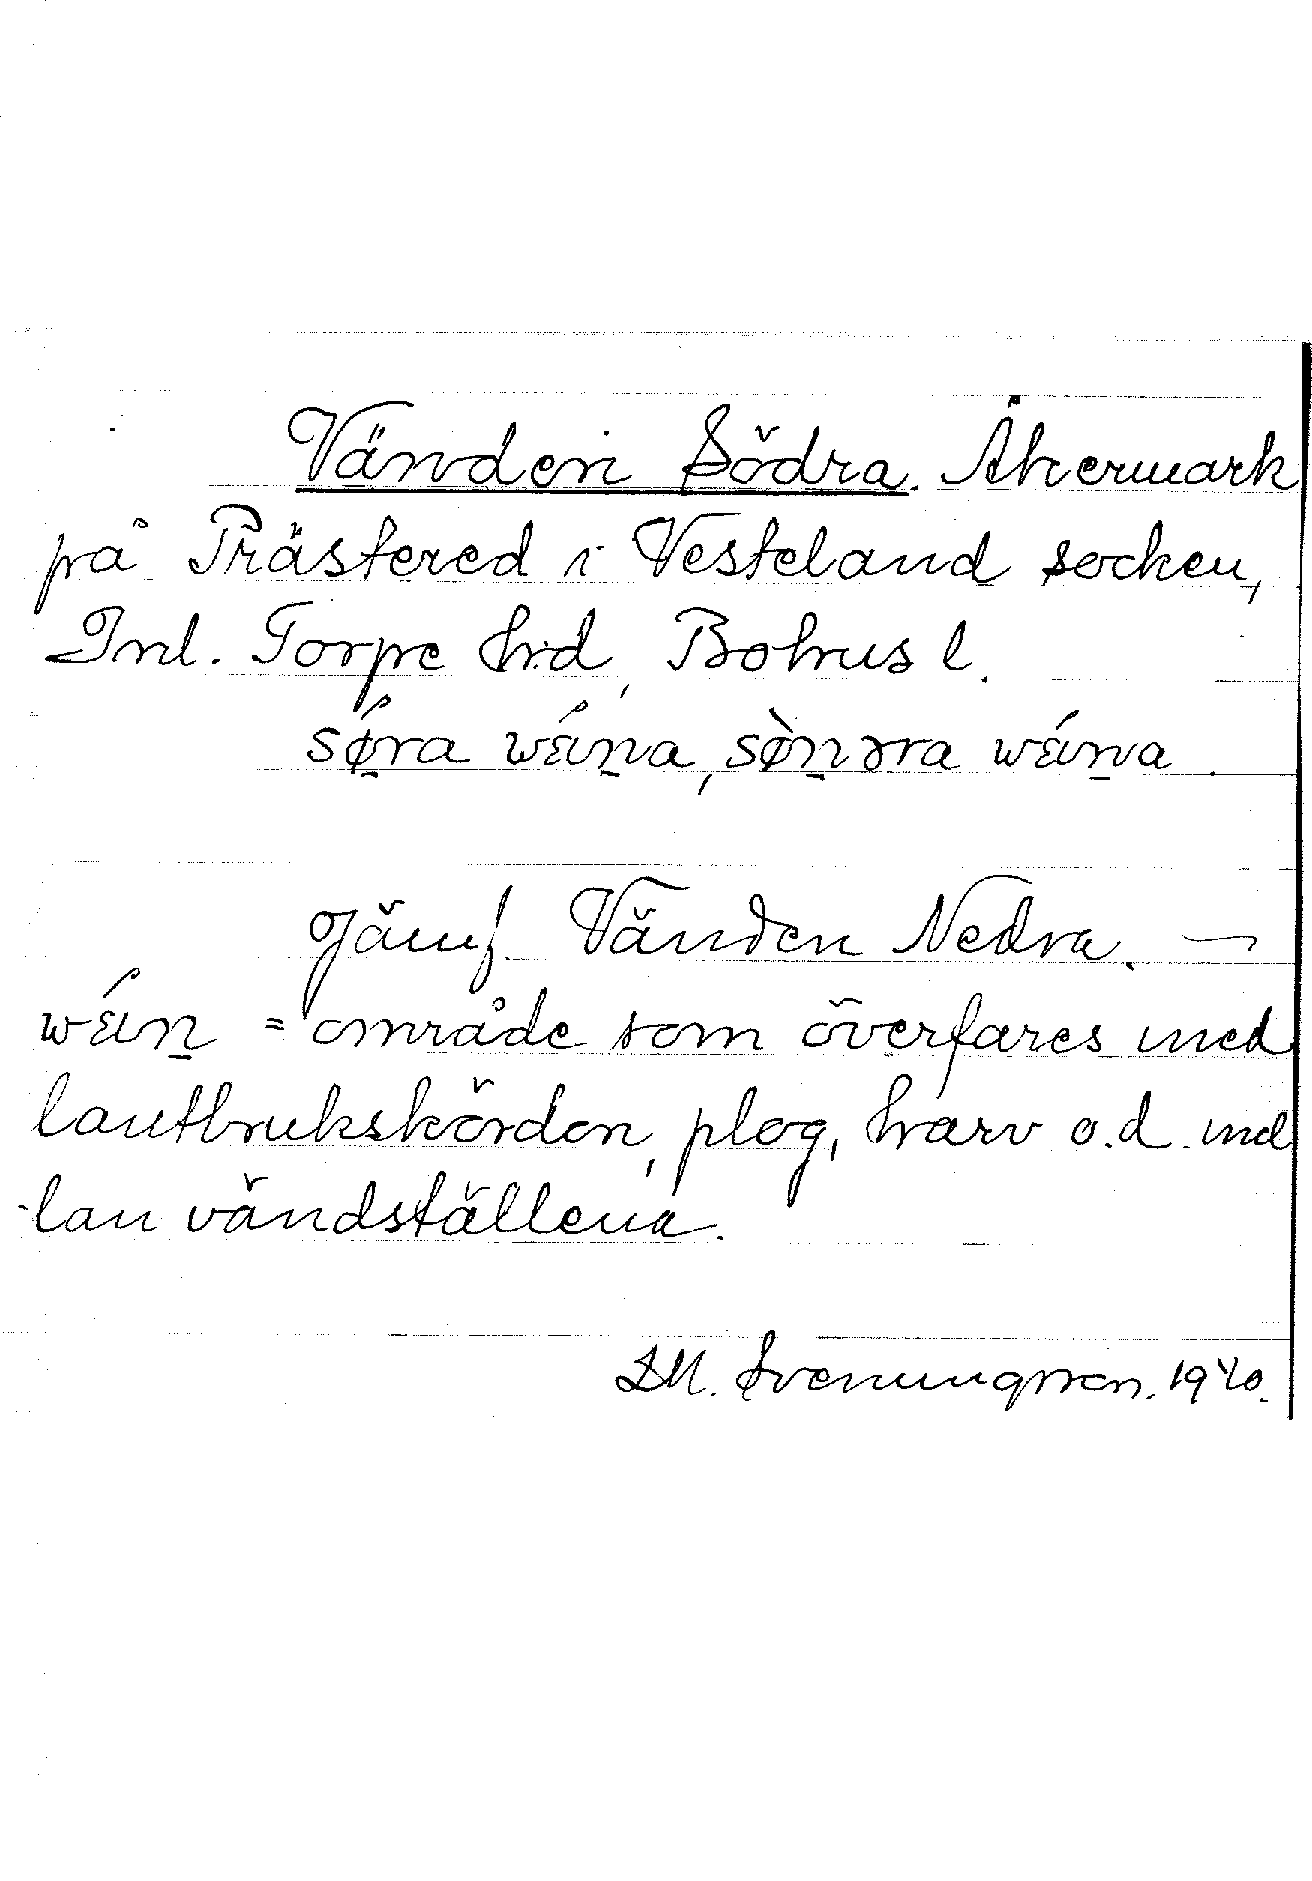 Vänden Södra. Åkermark
på Prästered i Vesteland socken,
Inl. Torpe hrd, Bohus l.
sǿra wéina, sø̀nǝra wéina.
Jämf. Vänden Nedra. —
wéin = område som överfares med
lantbrukskördon, plog, harv o.d. mel
lan vändställena.
D.M. Svenningsson. 1940.